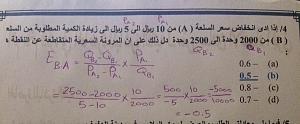 4/ إذا أدى انخفاض سعر السلعة (A) من 10 ريال الى 5 ريال الى زيادة الكمية المطلوبة من السلعة
(B) من 2000 وحدة الى 2500 وحدة دل ذلك على ان المرونة السعرية المتقاطعة عن النقطة
0.6 – (a)
0.5 – (b)
0.8 – (c)
0.7 – (d)
E B.A = QB2 - QB1 / PA2 - PA1 × PA1 / QB1
= 2500-2000 / 5-10 × 10 / 2000 = 500 / -5 × 10 / 2000
= -0.5